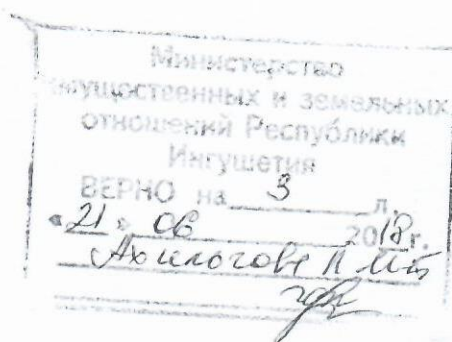 Министерство
имущественных и земельных
отношений Республики
Ингушетия
ВЕРНО на 3 л.
«21» 06 2018г.